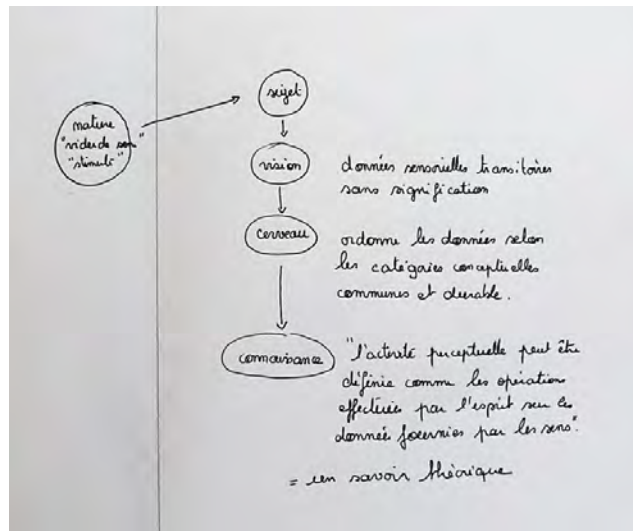 matière
"vidée de son"
"stimuli"
sujet
vision
données sensorielles transitoires
sans signification
cerveau
ordonne les données selon
les catégories conceptuelles
communes et durable.
connaissance
"l'activité perceptuelle peut être
définie comme les opération
effectuées par l'esprit sur les
données fournies par les sens".
= un savoir théorique